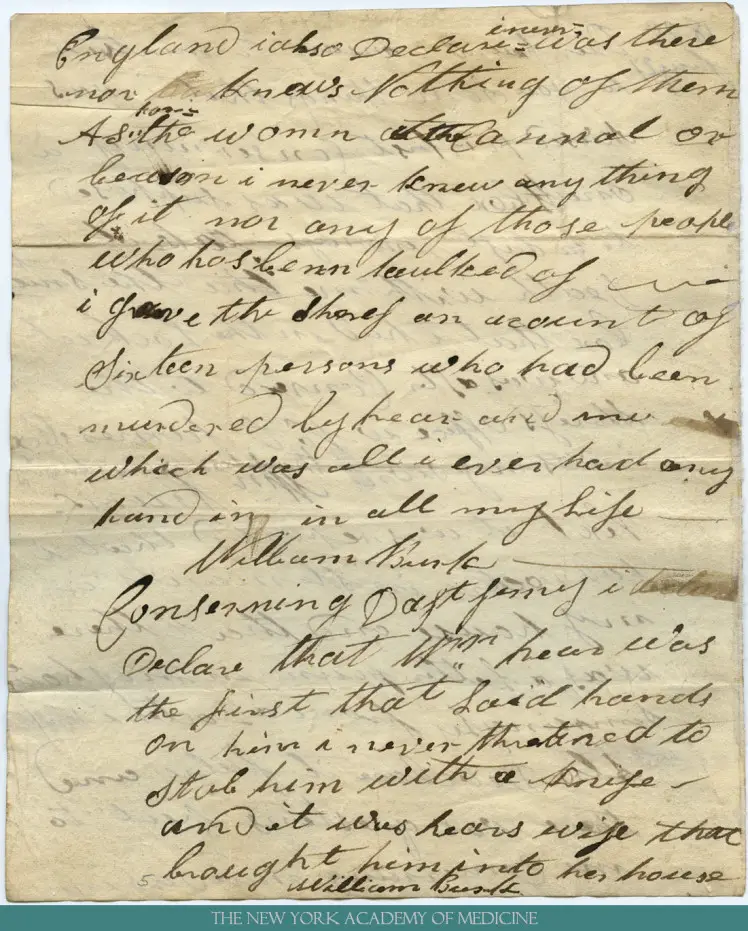 England i also Declare i never was there
nor knows Nothing of them
As the womn at the Cannal or
i never knew any thing
of it nor any of those people
who has benn taulked of
i gave the Sheref an acount of
Sixteen persons who had been
murdered by hear and me
which was all i ever had any
hand in in all my Life
William Burk
Conserning Daft Jemey i
Declare that Wm hear was
the first that Laid hands
on him i never thretined to
stab him with a knife
and it was hears wife that
braught him into her house
William Burk
THE NEW YORK ACADEMY OF MEDICINE